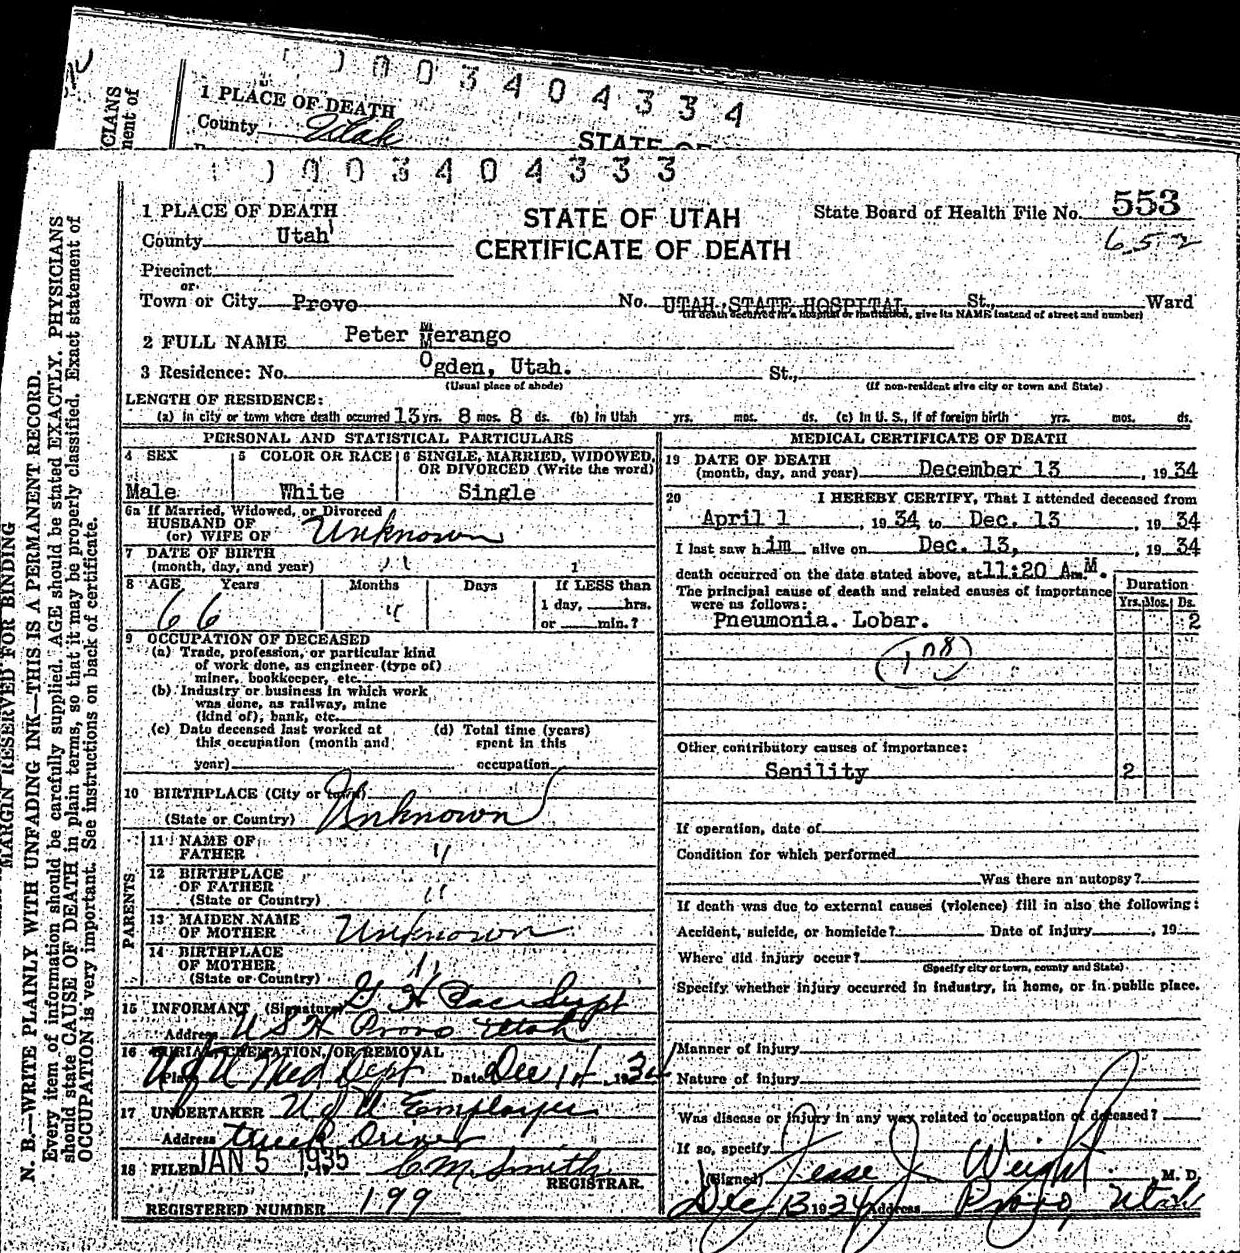 0 0 0 3 4 0 4 3 3 4
1 PLACE OF DEATH
County Utah
0 0 0 3 4 0 4 3 3 3
MARGIN RESERVED FOR BINDING
N. B.—WRITE PLAINLY WITH UNFADING INK—THIS IS A PERMANENT RECORD.
Every item of information should be carefully supplied. AGE should be stated EXACTLY. PHYSICIANS
should state CAUSE OF DEATH in plain terms, so that it may be properly classified. Exact statement of
OCCUPATION is very important. See instructions on back of certificate.
1 PLACE OF DEATH
STATE OF UTAH
State Board of Health File No. 553
652
County Utah
CERTIFICATE OF DEATH
Precinct
or
Town or City Provo No. UTAH STATE HOSPITAL St., Ward
(If death occurred in a hospital or institution, give its NAME instead of street and number)
2 FULL NAME Peter Merango
3 Residence: No. Ogden, Utah. St.,
(Usual place of abode) (If non-resident give city or town and State)
LENGTH OF RESIDENCE:
(a) in city or town where death occurred 13 yrs. 8 mos. 8 ds. (b) In Utah yrs. mos. ds. (c) In U. S., if of foreign birth yrs. mos. ds.
PERSONAL AND STATISTICAL PARTICULARS
4 SEX 5 COLOR OR RACE 6 SINGLE, MARRIED, WIDOWED,
OR DIVORCED (Write the word)
Male White Single
6a If Married, Widowed, or Divorced
HUSBAND OF
(or) WIFE OF Unknown
7 DATE OF BIRTH
(month, day, and year) "
8 AGE Years Months Days If LESS than
1 day, hrs.
or min.?
66 "
9 OCCUPATION OF DECEASED
(a) Trade, profession, or particular kind
of work done, as engineer (type of)
miner, bookkeeper, etc.
(b) Industry or business in which work
was done, as railway, mine
(kind of), bank, etc.
(c) Date deceased last worked at (d) Total time (years)
this occupation (month and spent in this
year) occupation
10 BIRTHPLACE (City or town)
(State or Country) Unknown
PARENTS
11 NAME OF
FATHER "
12 BIRTHPLACE
OF FATHER "
(State or Country)
13 MAIDEN NAME
OF MOTHER Unknown
14 BIRTHPLACE
OF MOTHER "
(State or Country)
15 INFORMANT (Signature) G H Supt
Address U S H Provo Utah
16 BURIAL, CREMATION, OR REMOVAL
Place U of U Med Dept Date Dec 14, 1934
17 UNDERTAKER U of U Employee
Address truck Driver
18 FILED JAN 5 1935 C M Smith
REGISTRAR.
REGISTERED NUMBER 199
MEDICAL CERTIFICATE OF DEATH
19 DATE OF DEATH
(month, day, and year) December 13, 1934
20 I HEREBY CERTIFY, That I attended deceased from
April 1, 1934, to Dec. 13, 1934
I last saw him alive on Dec. 13, 1934
death occurred on the date stated above, at 11:20 A.M.
The principal cause of death and related causes of importance
were as follows:
Duration
Yrs. Mos. Ds.
Pneumonia. Lobar. 2
(108)
Other contributory causes of importance:
Senility 2
If operation, date of
Condition for which performed
Was there an autopsy?
If death was due to external causes (violence) fill in also the following:
Accident, suicide, or homicide? Date of injury, 19
Where did injury occur?
(Specify city or town, county and State)
Specify whether injury occurred in industry, in home, or in public place.
Manner of injury
Nature of injury
Was disease or injury in any way related to occupation of deceased?
If so, specify
(Signed) Jesse J Weight M. D.
Dec 13 1934 Address Provo, Utah